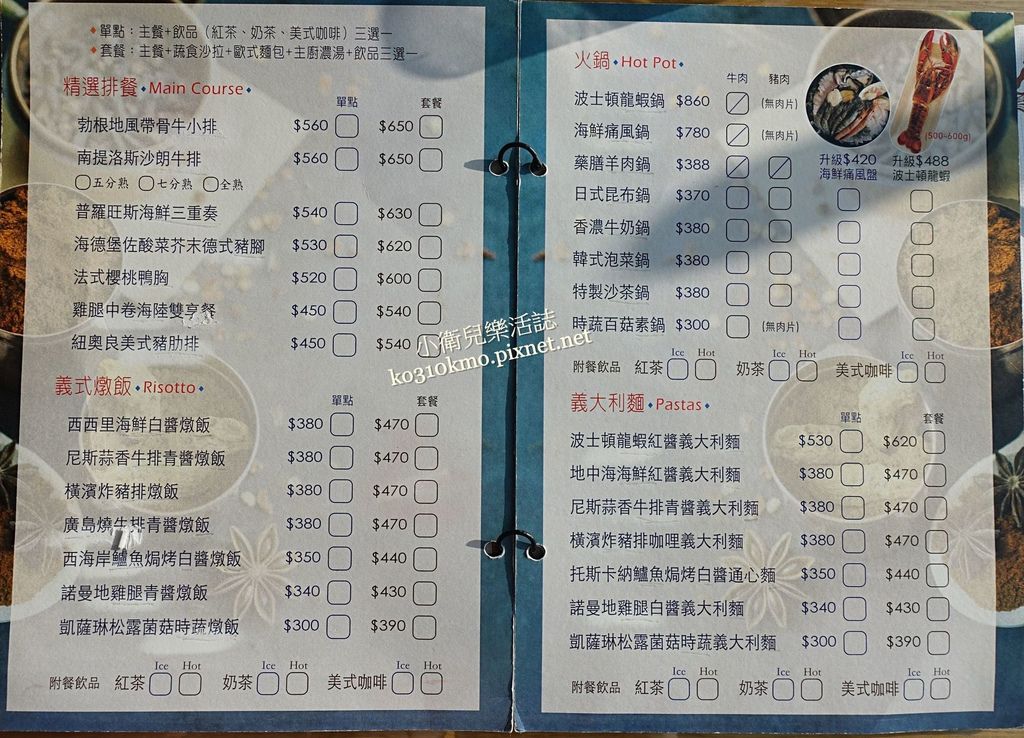 ◆單點：主餐+飲品（紅茶、奶茶、美式咖啡）三選一
◆套餐：主餐+蔬食沙拉+歐式麵包+主廚濃湯+飲品三選一
精選排餐◆Main Course◆
單點 套餐
勃根地風帶骨牛小排 $560 $650
南提洛斯沙朗牛排 $560 $650
五分熟 七分熟 全熟
普羅旺斯海鮮三重奏 $540 $630
海德堡佐酸菜芥末德式豬腳 $530 $620
法式櫻桃鴨胸 $520 $600
雞腿中卷海陸雙享餐 $450 $540
紐奧良美式豬肋排 $450 $540
義式燉飯◆Risotto◆
單點 套餐
西西里海鮮白醬燉飯 $380 $470
尼斯蒜香牛排青醬燉飯 $380 $470
橫濱炸豬排燉飯 $380 $470
廣島燒牛排青醬燉飯 $380 $470
西海岸鱸魚焗烤白醬燉飯 $350 $440
諾曼地雞腿青醬燉飯 $340 $430
凱薩琳松露菌菇時蔬燉飯 $300 $390
Ice Hot Ice Hot Ice Hot
附餐飲品 紅茶 奶茶 美式咖啡
火鍋◆Hot Pot◆
牛肉 豬肉
波士頓龍蝦鍋 $860 (無肉片)
海鮮痛風鍋 $780 (無肉片)
(500-600g)
升級$420 升級$488
海鮮痛風盤 波士頓龍蝦
藥膳羊肉鍋 $388
日式昆布鍋 $370
香濃牛奶鍋 $380
韓式泡菜鍋 $380
特製沙茶鍋 $380
時蔬百菇素鍋 $300 (無肉片)
Ice Hot Ice Hot Ice Hot
附餐飲品 紅茶 奶茶 美式咖啡
義大利麵◆Pastas◆
單點 套餐
波士頓龍蝦紅醬義大利麵 $530 $620
地中海海鮮紅醬義大利麵 $380 $470
尼斯蒜香牛排青醬義大利麵 $380 $470
橫濱炸豬排咖哩義大利麵 $380 $470
托斯卡納鱸魚焗烤白醬通心麵 $350 $440
諾曼地雞腿白醬義大利麵 $340 $430
凱薩琳松露菌菇時蔬義大利麵 $300 $390
Ice Hot Ice Hot Ice Hot
附餐飲品 紅茶 奶茶 美式咖啡
小衛兒樂活誌
ko310kmo.pixnet.net